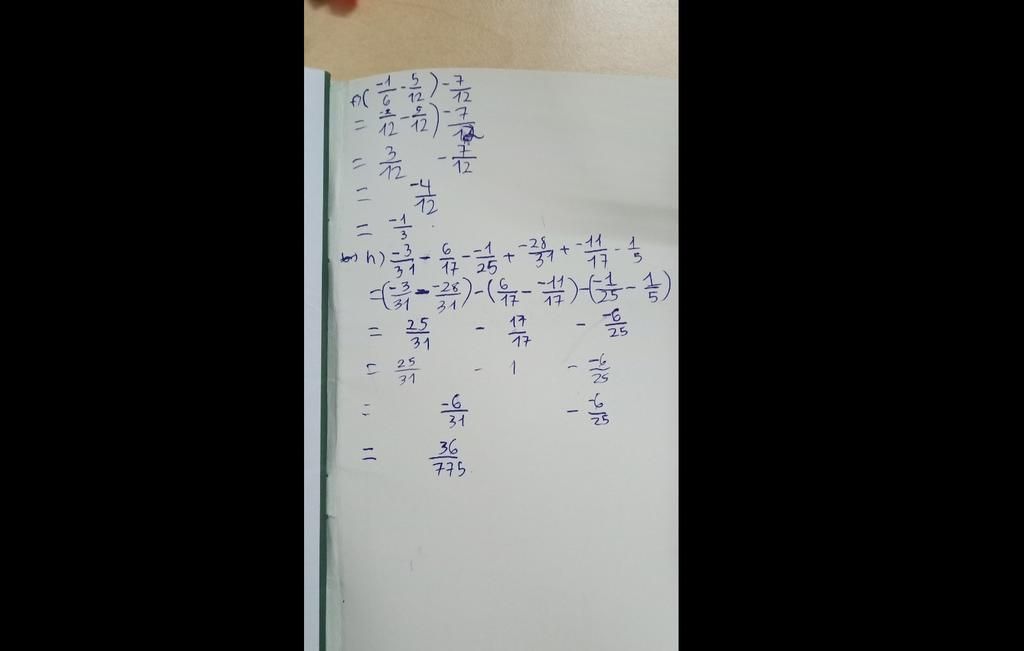 n) ( -1/6 - 5/12 ) - 7/12
= -2/12 - 5/12 ) - 7/12
= 3/12 - 7/12
= -4/12
= -1/3
h) -3/31 - 6/17 - -1/25 + -28/31 + -11/17 - 1/5
= ( -3/31 - -28/31 ) - ( 6/17 - -11/17 ) - ( -1/25 - 1/5 )
= 25/31 - 17/17 - -6/25
= 25/31 - 1 - -6/25
= -6/31 - -6/25
= 36/775